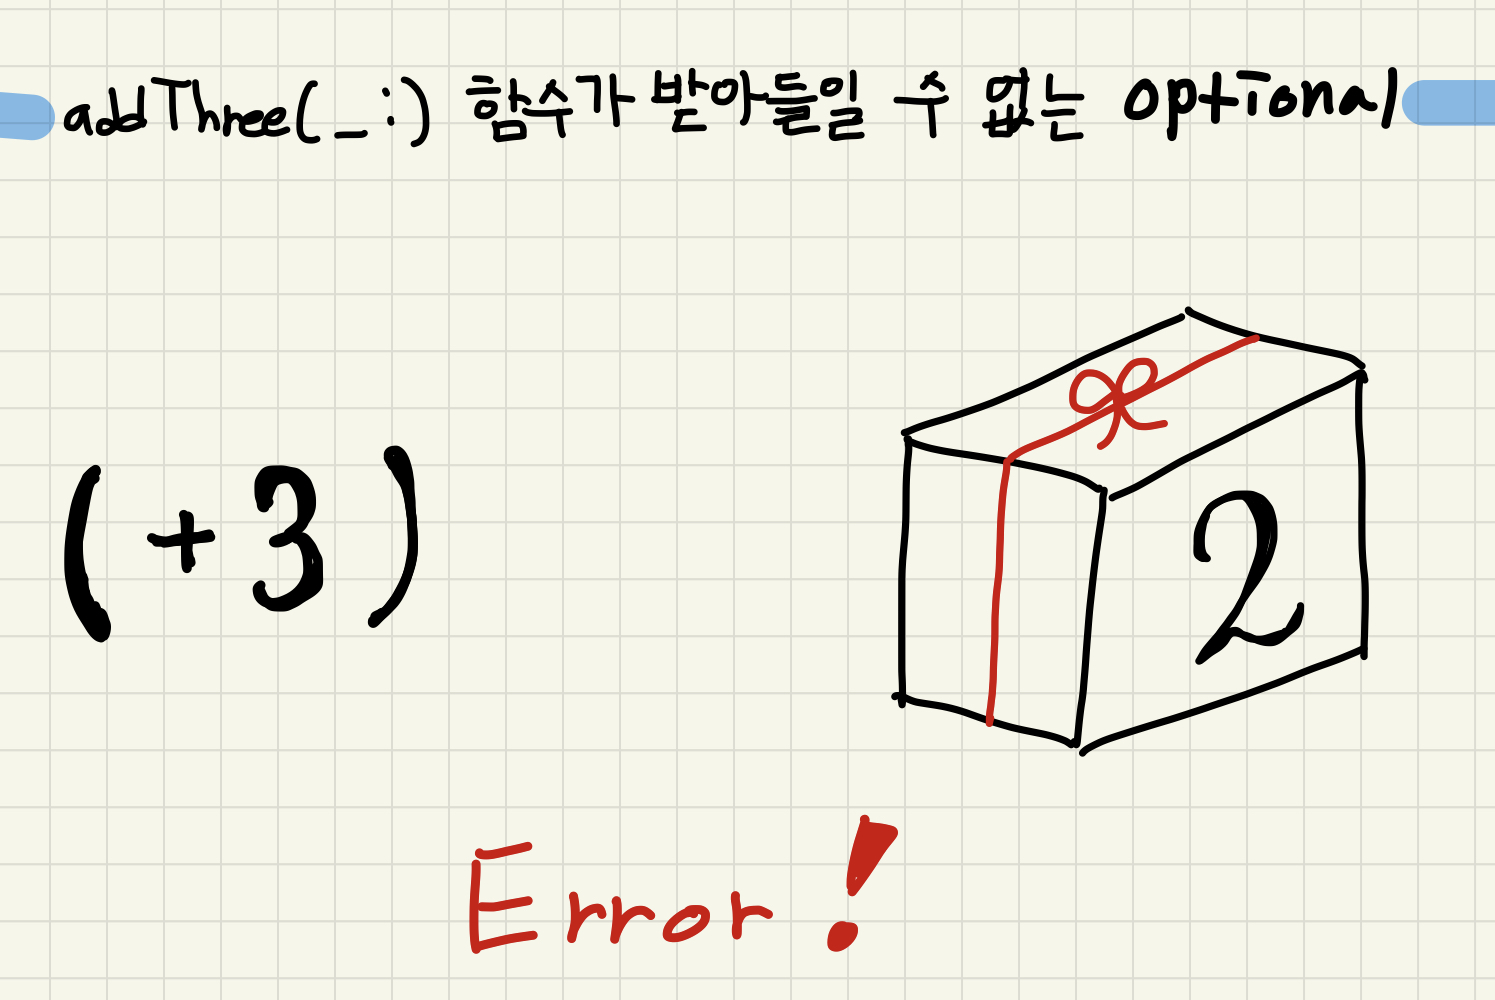 addThree(_:) 함수가 받아들일 수 없는 optional
(+3)
2
Error!